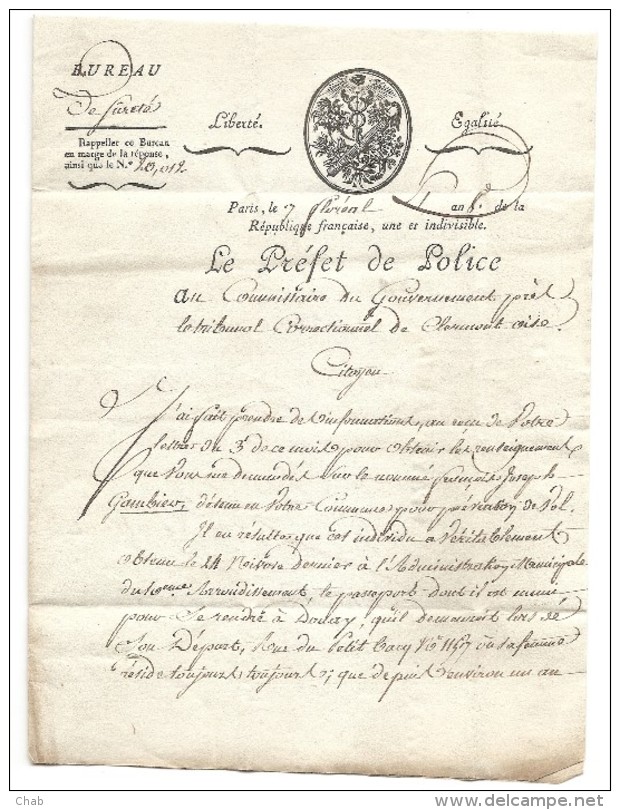 BUREAU
De sureté
Rappeller ce Bureau
en marge de la réponse,
ainsi que le N.º
Liberté.
Egalité.
Paris, le 7 floréal an 8.e de la
République française, une et indivisible.
Le Préfet de Police
au Commissaire du Gouvernement près
le tribunal Correctionnel de Clermont oise.
Citoyen
J'ai fait prendre des informations, au reçu de Votre
lettre du 3 de ce mois pour obtenir les renseignements
que Vous me demandés sur le nommé françois Joseph
Gambier, détenu en Votre Commune pour prévention de Vol.
Il en résulte que cet individu a Véritablement
obtenu le 24 Nivose dernier à l'Administration Municipale
du 10eme Arrondissement, le passeport dont il est muni
pour Se rendre à Douay; qu'il demeurait lors de
Son Départ, Rue du Petit bacq No 1157 où sa femme
réside toujours; que depuis environ un an
Chab
www.delcampe.net